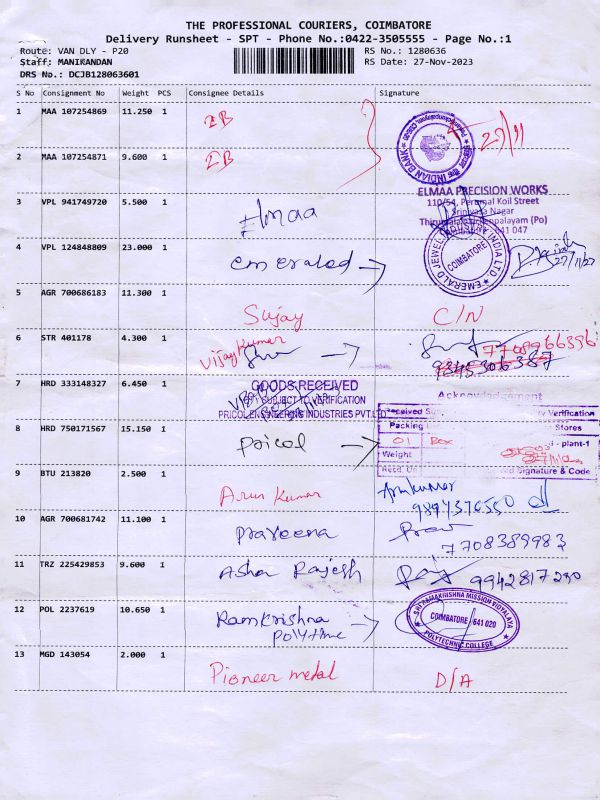 THE PROFESSIONAL COURIERS, COIMBATORE
Delivery Runsheet - SPT - Phone No.:0422-3505555 - Page No.:1
Route: VAN DLY - P20
RS No.: 1280636
Staff: MANIKANDAN
RS Date: 27-Nov-2023
DRS No.: DCJB128063601
S No Consignment No Weight PCS Consignee Details Signature
1 MAA 107254869 11.250 1 IB 27/11
INDIAN BANK
2 MAA 107254871 9.600 1 IB
ELMAA PRECISION WORKS
3 VPL 941749720 5.500 1 Elmaa
110/54, Perumal Koil Street
Srinivasa Nagar
641 047
4 VPL 124848809 23.000 1 emeralad
EMERALD JEWEL INDUSTRY INDIA LTD.
COIMBATORE
27/11/27
5 AGR 700686183 11.300 1 Sujay C/N
6 STR 401178 4.300 1 Vijay Kumar 7708966396
9345306387
7 HRD 333148327 6.450 1 GOODS RECEIVED
SUBJECT TO VERIFICATION
PRICOL ENGINEERING INDUSTRIES PVT LTD
Acknowledgement
Verification
8 HRD 750171567 15.150 1 Pricol
Packing Stores
01 Box - plant-1
Weight
Signature & Code
9 BTU 213820 2.500 1 Arun Kumar Arunkumar
9894376550
10 AGR 700681742 11.100 1 Praveena Prav
7708389983
11 TRZ 225429853 9.600 1 Asha Rajesh 9942817230
12 POL 2237619 10.650 1 Ramkrishna
Polytime
SRI RAMAKRISHNA MISSION VIDYALAYA
COIMBATORE - 641 020
POLYTECHNIC COLLEGE
13 MGD 143054 2.000 1 Pioneer metal D/A